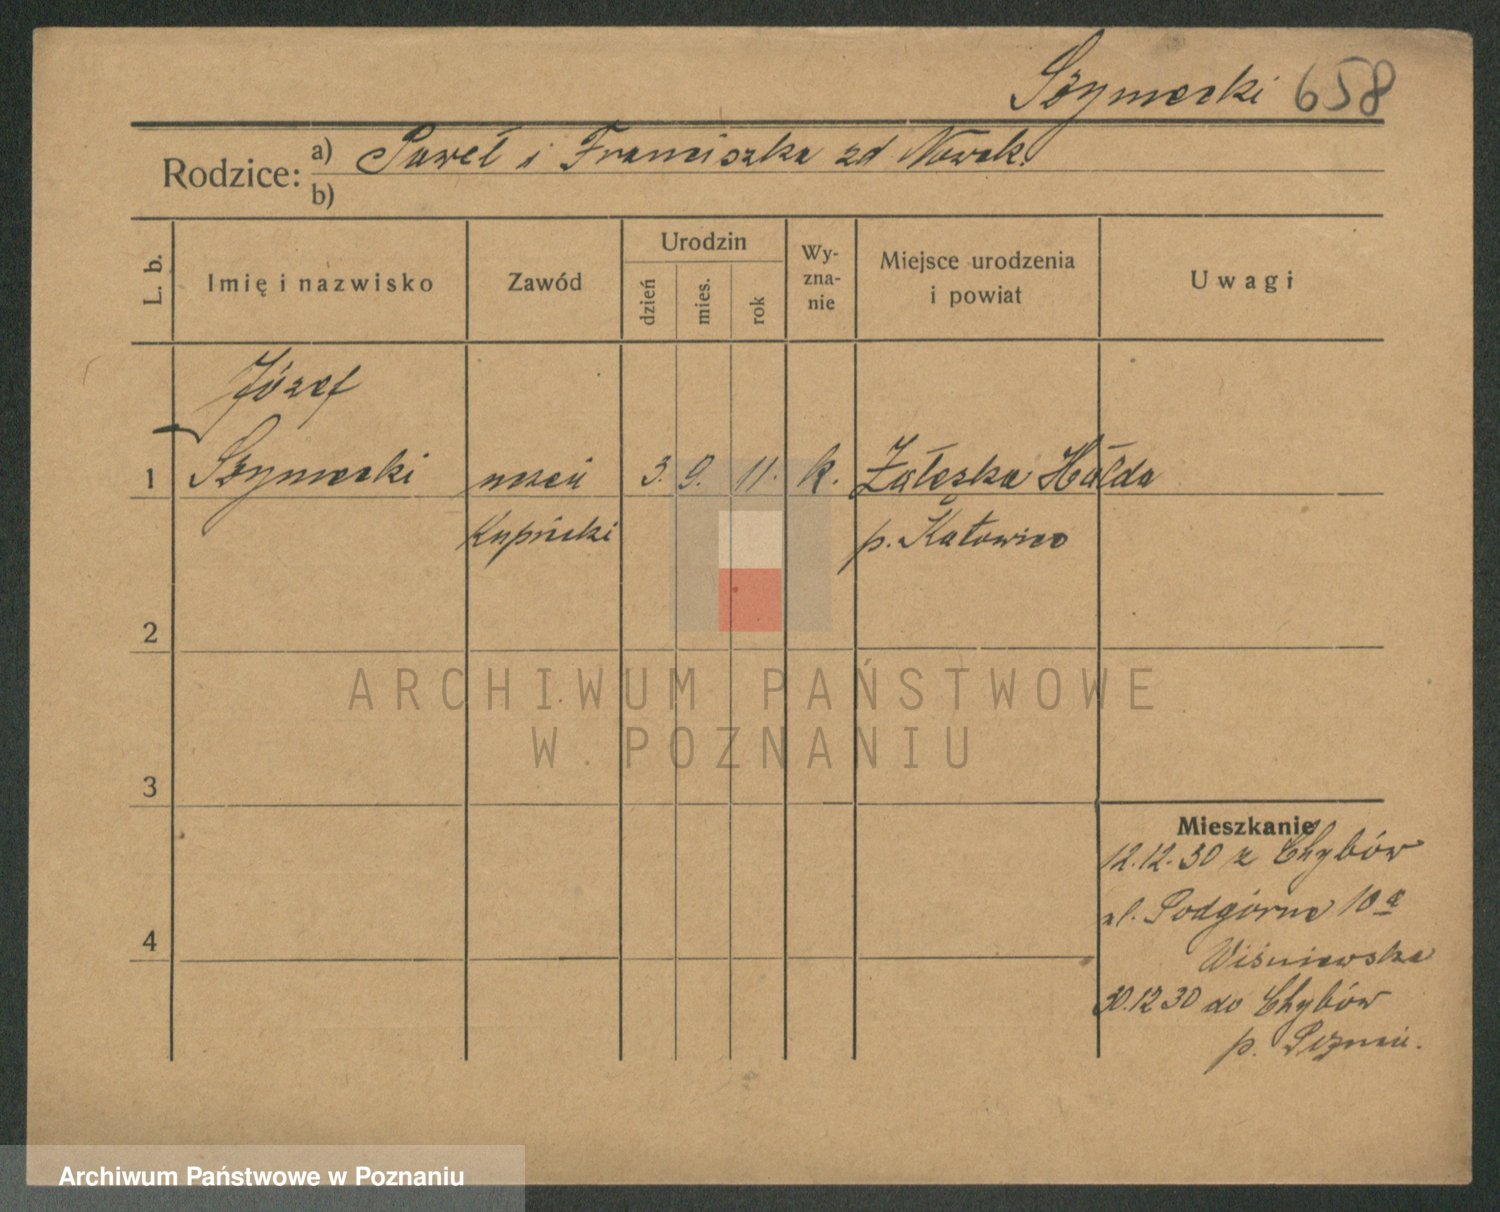 Szymecki 658
Rodzice: a) Paweł i Franciszka zd Nowak.
b)
L. b.
Imię i nazwisko
Zawód
Urodzin
dzień
mies.
rok
Wy-
zna-
nie
Miejsce urodzenia
i powiat
Uwagi
Józef
1 Szymecki uczeń 3. 9. 11. k. Załeska Hałda
Kupiecki p. Katowice
2
3
4
Mieszkanie
12.12.30 z Chybów
ul. Podgórna 10a
Wiśniewska
30.12 30 do Chybów
p. Poznań.
ARCHIWUM PAŃSTWOWE
W POZNANIU
Archiwum Państwowe w Poznaniu